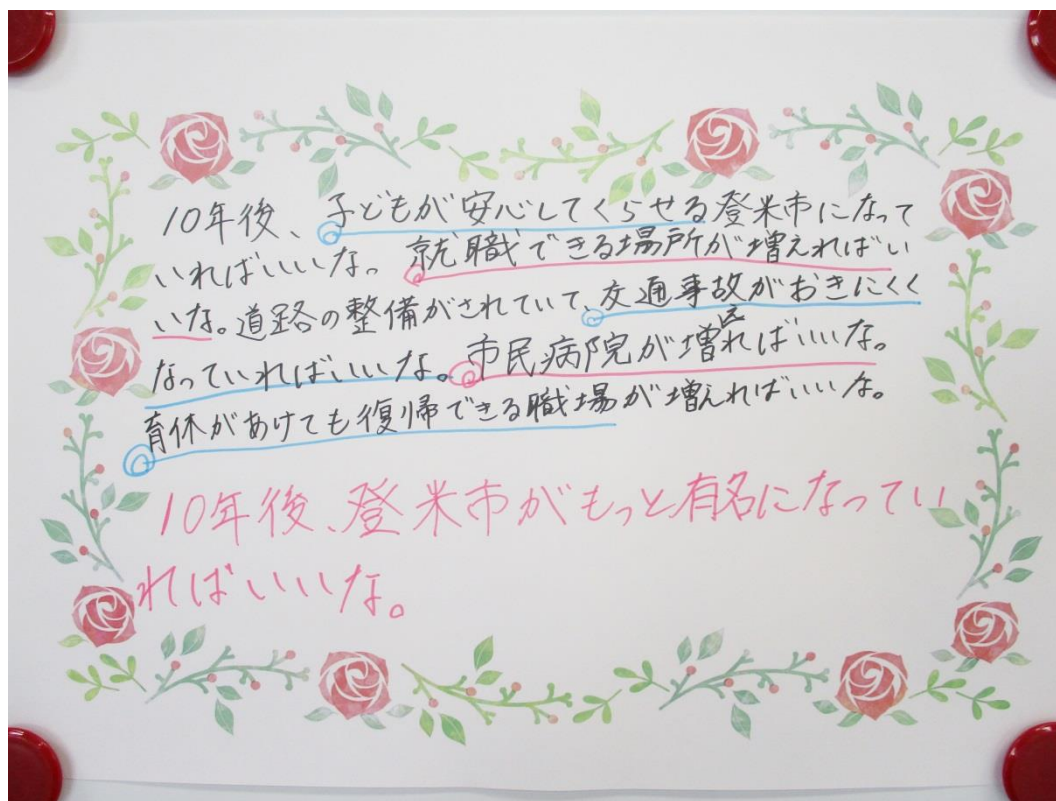 10年後、子どもが安心してくらせる登米市になって
いればいいな。就職できる場所が増えればい
いな。道路の整備がされていて、交通事故がおきにくく
なっていればいいな。市民病院が増えればいいな。
育休があけても復帰できる職場が増えればいいな。
10年後、登米市がもっと有名になってい
ればいいな。